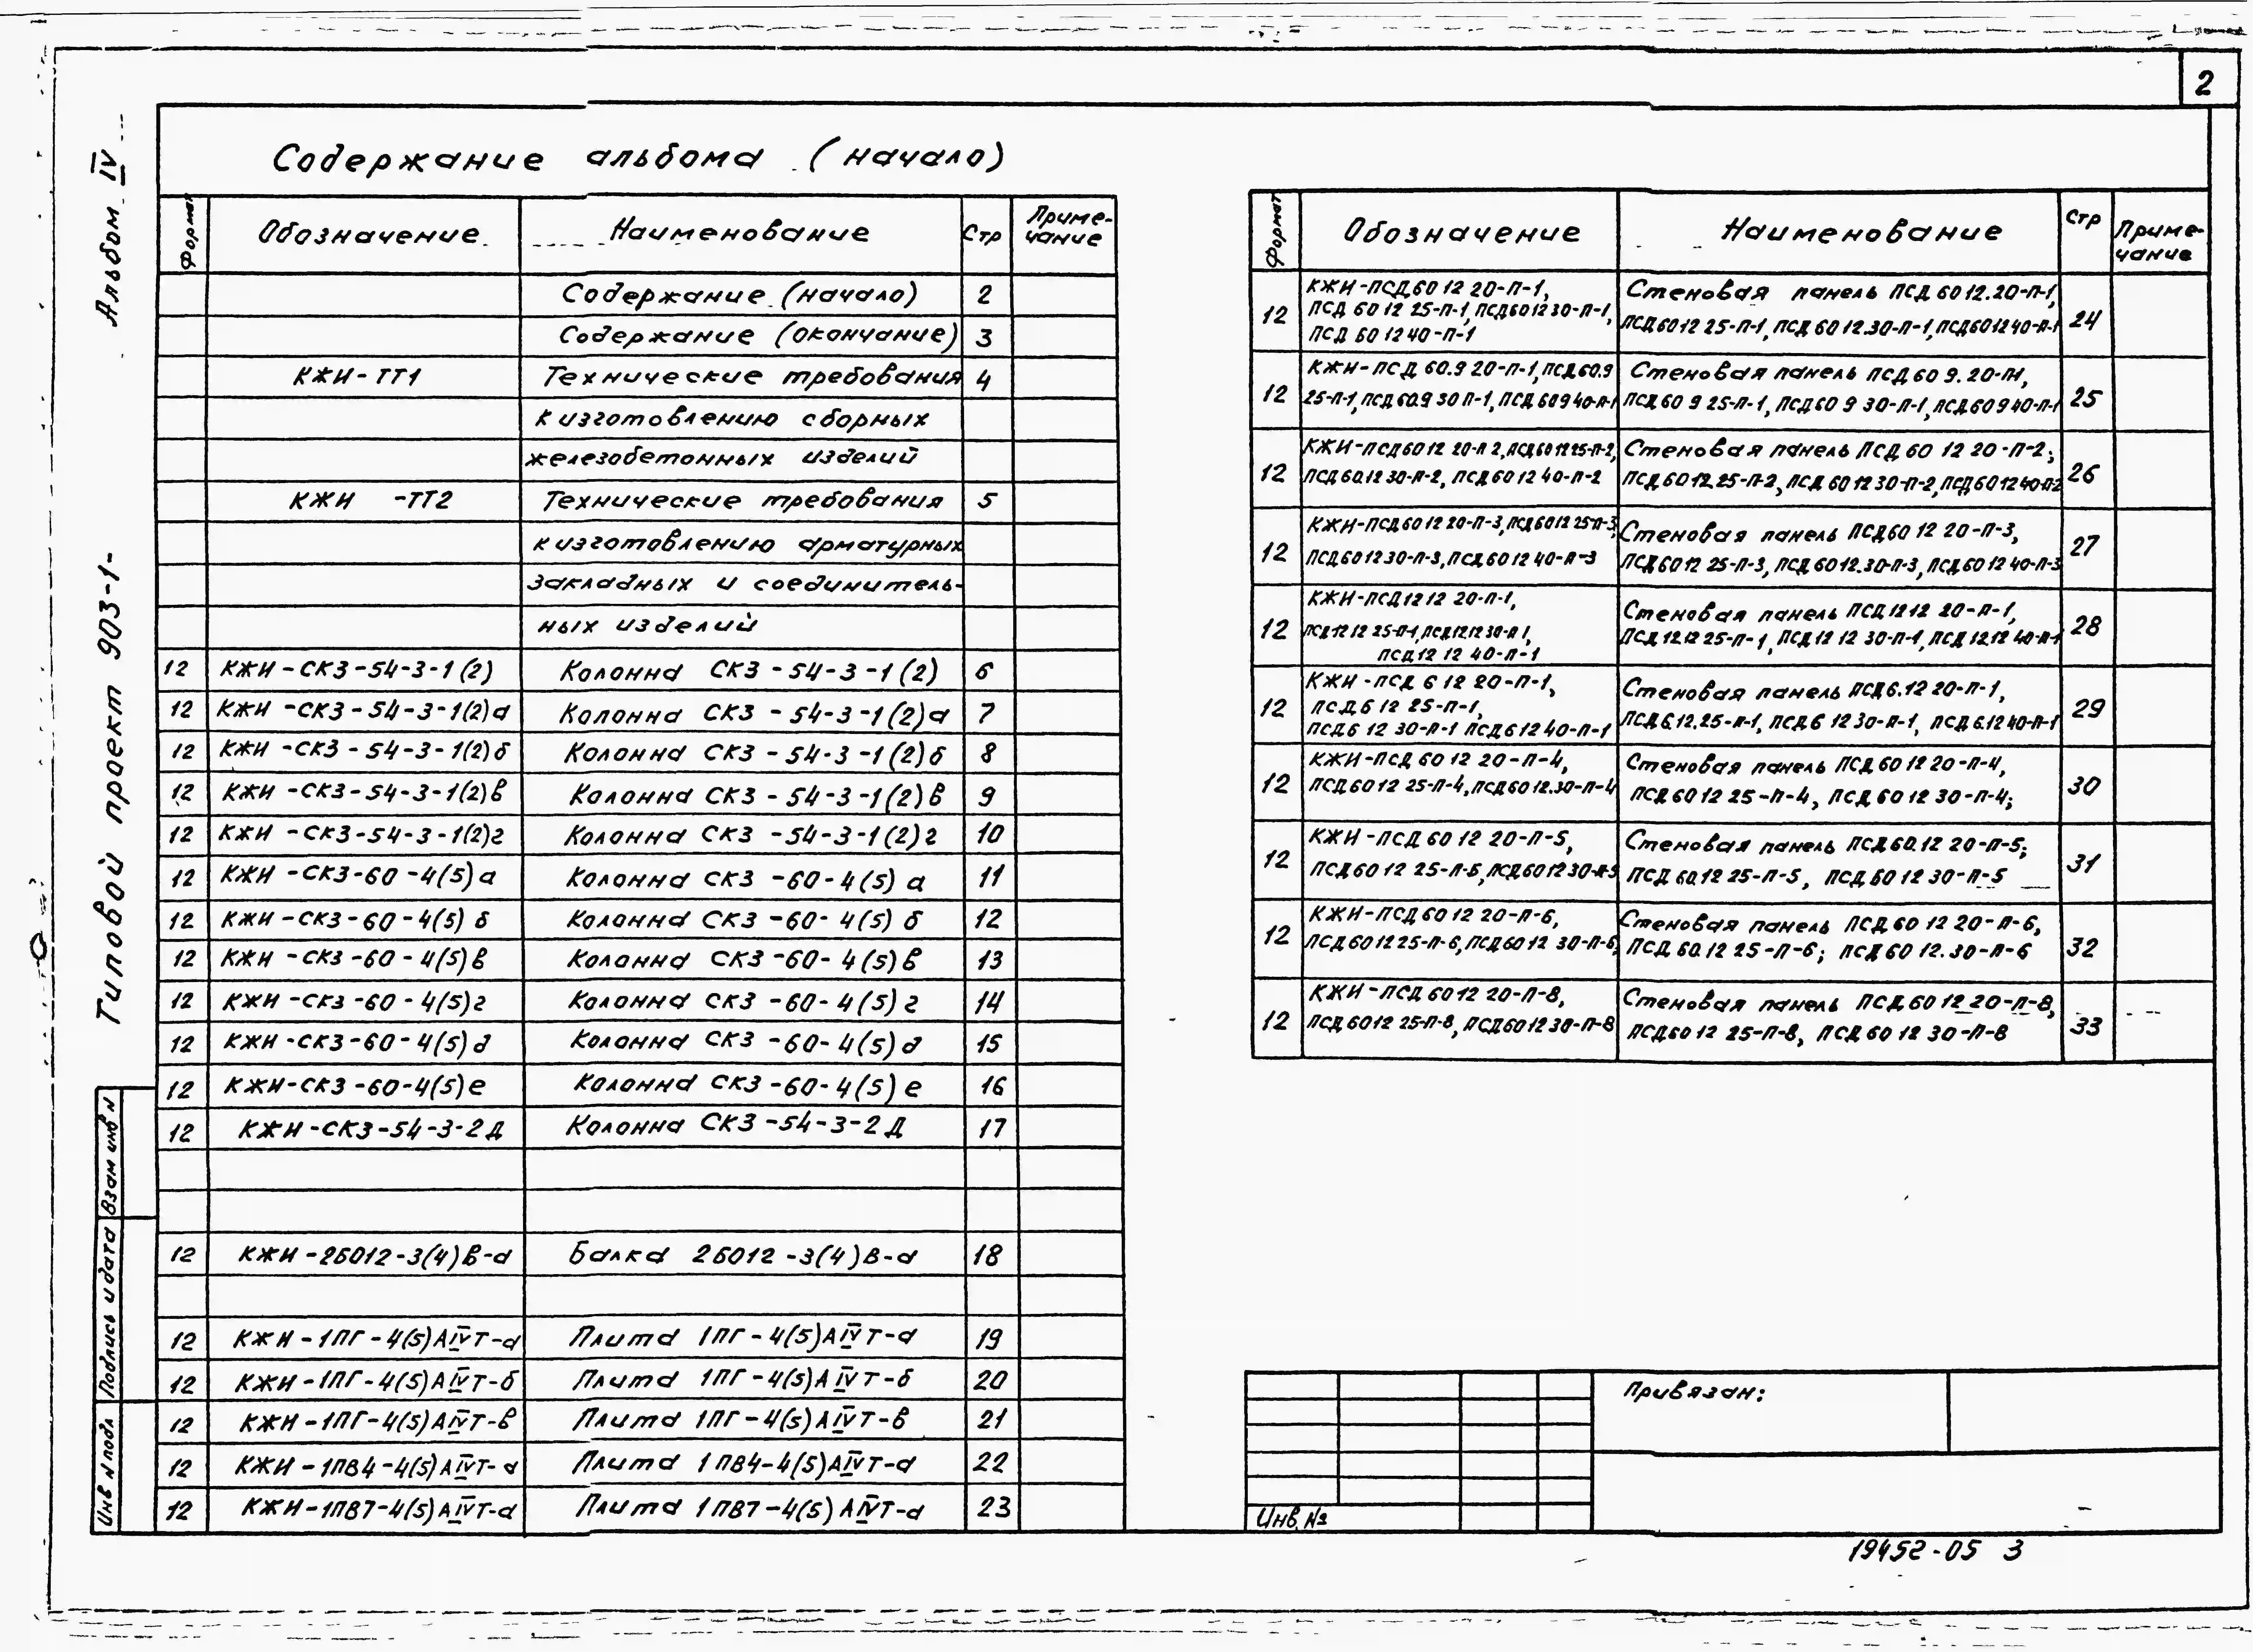 2
Альбом IV
Типовой проект 903-1-
Содержание альбома (начало)
Формат Обозначение Наименование Стр Приме-
чание
Содержание (начало) 2
Содержание (окончание) 3
КЖИ-ТТ1 Технические требования 4
к изготовлению сборных
железобетонных изделий
КЖИ -ТТ2 Технические требования 5
к изготовлению арматурных
закладных и соединитель-
ных изделий
12 КЖИ-СКЗ-54-3-1(2) Колонна СКЗ-54-3-1(2) 6
12 КЖИ-СКЗ-54-3-1(2)а Колонна СКЗ-54-3-1(2)а 7
12 КЖИ-СКЗ-54-3-1(2)б Колонна СКЗ-54-3-1(2)б 8
12 КЖИ-СКЗ-54-3-1(2)в Колонна СКЗ-54-3-1(2)в 9
12 КЖИ-СКЗ-54-3-1(2)г Колонна СКЗ-54-3-1(2)г 10
12 КЖИ-СКЗ-60-4(5)а Колонна СКЗ-60-4(5)а 11
12 КЖИ-СКЗ-60-4(5)б Колонна СКЗ-60-4(5)б 12
12 КЖИ-СКЗ-60-4(5)в Колонна СКЗ-60-4(5)в 13
12 КЖИ-СКЗ-60-4(5)г Колонна СКЗ-60-4(5)г 14
12 КЖИ-СКЗ-60-4(5)д Колонна СКЗ-60-4(5)д 15
12 КЖИ-СКЗ-60-4(5)е Колонна СКЗ-60-4(5)е 16
12 КЖИ-СКЗ-54-3-2Д Колонна СКЗ-54-3-2Д 17
12 КЖИ-2БО12-3(4)В-а Балка 2БО12-3(4)В-а 18
12 КЖИ-1ПГ-4(5)АIVТ-а Плита 1ПГ-4(5)АIVТ-а 19
12 КЖИ-1ПГ-4(5)АIVТ-б Плита 1ПГ-4(5)АIVТ-б 20
12 КЖИ-1ПГ-4(5)АIVТ-в Плита 1ПГ-4(5)АIVТ-в 21
12 КЖИ-1ПВ4-4(5)АIVТ-а Плита 1ПВ4-4(5)АIVТ-а 22
12 КЖИ-1ПВ7-4(5)АIVТ-а Плита 1ПВ7-4(5)АIVТ-а 23
Формат Обозначение Наименование Стр Приме-
чание
КЖИ-ПСД60 12 20-П-1, Стеновая панель ПСД 60 12.20-П-1,
12 ПСД 60 12 25-П-1, ПСД60 12 30-П-1, ПСД60 12 25-П-1, ПСД 60 12.30-П-1, ПСД60 12 40-П-1 24
ПСД 60 12 40-П-1
КЖИ-ПСД 60.9 20-П-1, ПСД60.9 Стеновая панель ПСД 60 9. 20-П-1,
12 25-П-1, ПСД 60.9 30 П-1, ПСД 60 9 40-П-1 ПСД 60 9 25-П-1, ПСД60 9 30-П-1, ПСД60 9 40-П-1 25
КЖИ-ПСД60 12 20-П 2, ПСД60 12 25-П-2, Стеновая панель ПСД 60 12 20-П-2;
12 ПСД 60.12 30-П-2, ПСД60 12 40-П-2 ПСД 60 12.25-П-2, ПСД 60 12 30-П-2, ПСД 60 12 40-П-2 26
КЖИ-ПСД60 12 20-П-3, ПСД60 12 25-П-3, Стеновая панель ПСД60 12 20-П-3,
12 ПСД60 12 30-П-3, ПСД60 12 40-П-3 ПСД60 12 25-П-3, ПСД 60 12.30-П-3, ПСД60 12 40-П-3 27
КЖИ-ПСД12 12 20-П-1, Стеновая панель ПСД12 12 20-П-1,
12 ПСД12 12 25-П-1, ПСД12.12 30-П 1, ПСД 12.12 25-П-1, ПСД12 12 30-П-1, ПСД 12.12 40-П-1 28
ПСД12 12 40-П-1
КЖИ-ПСД 6 12 20-П-1, Стеновая панель ПСД6.12 20-П-1,
12 ПСД6 12 25-П-1, ПСД6.12.25-П-1, ПСД6 12 30-П-1, ПСД 6.12 40-П-1 29
ПСД6 12 30-П-1 ПСД6 12 40-П-1
КЖИ-ПСД 60 12 20-П-4, Стеновая панель ПСД 60 12 20-П-4,
12 ПСД60 12 25-П-4, ПСД60 12.30-П-4 ПСД60 12 25-П-4, ПСД 60 12 30-П-4; 30
КЖИ-ПСД 60 12 20-П-5, Стеновая панель ПСД60.12 20-П-5;
12 ПСД60 12 25-П-5, ПСД60 12 30-П-5 ПСД 60.12 25-П-5, ПСД 60 12 30-П-5 31
КЖИ-ПСД60 12 20-П-6, Стеновая панель ПСД 60 12 20-П-6,
12 ПСД60 12 25-П-6, ПСД60 12 30-П-6, ПСД 60.12 25-П-6; ПСД 60 12.30-П-6 32
КЖИ-ПСД 60 12 20-П-8, Стеновая панель ПСД 60 12 20-П-8,
12 ПСД 60 12 25-П-8, ПСД60 12 30-П-8 ПСД60 12 25-П-8, ПСД 60 12 30-П-8 33
Взам инв N
Подпись и дата
Инв N подл
Привязан:
Инв. №
19452-05 3